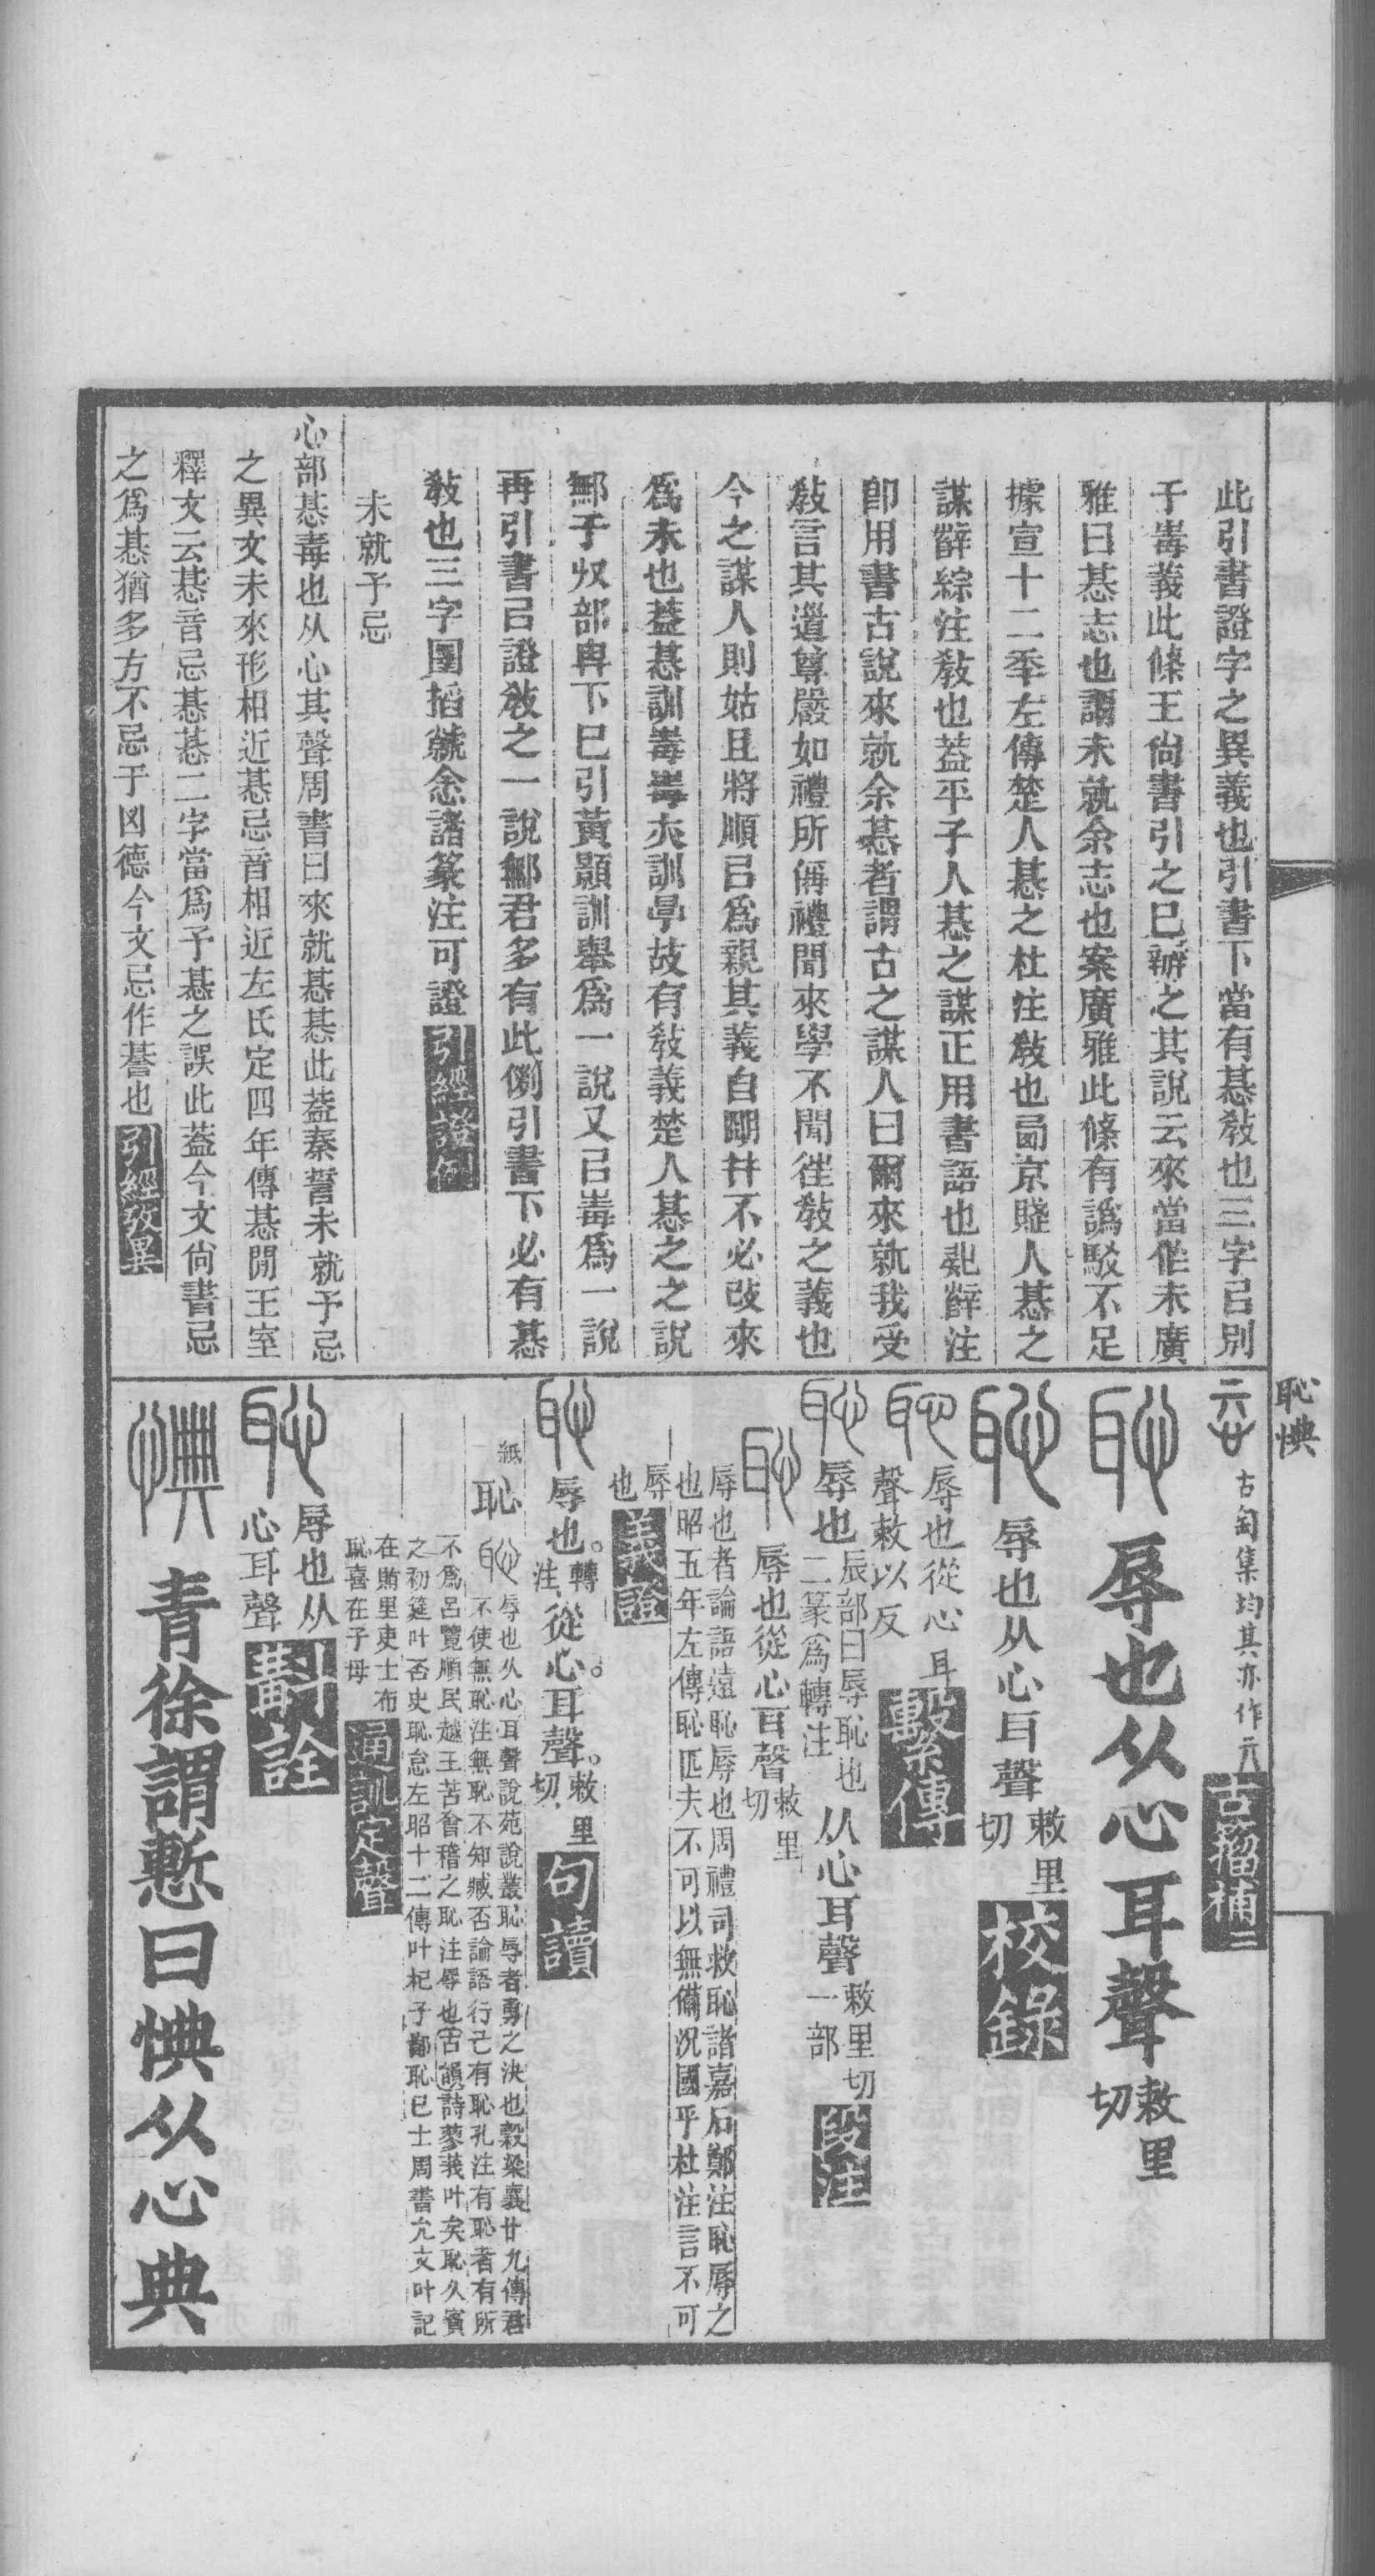 此引書證字之異義也引書下當有惎敎也三字㠯別
于毒義此條王尙書引之已辦之其說云來當作未廣
雅曰惎志也謂未就余志也案廣雅此條有譌駁不足
據宣十二年左傳楚人惎之杜注敎也西京賤人惎之
謀辭綜注敎也蓋平子人惎之謀正用書語也辭注
卽用書古說來就余惎者謂古之謀人曰爾來就我受
敎言其道尊嚴如禮所偁禮聞來學不聞往敎之義也
今之謀人則姑且將順㠯爲親其義自朙幷不必改來
爲未也蓋惎訓毒毒亦訓故有敎義楚人惎之之說
鄦于収部下已引黃顥訓舉爲一說又㠯毒爲一說
再引書㠯證敎之一說鄦君多有此例引書下必有惎
敎也三字圛諸篆注可證引經證例
未就予忌
心部惎毒也从心其聲周書曰來就惎惎此蓋秦誓未就予忌
之異文未來形相近惎忌音相近左氏定四年傳惎閒王室
釋文云惎音忌惎惎二字當爲予惎之誤此蓋今文尙書忌
之爲惎猶多方不忌于凶德今文忌作諅也引經攷異
恥㥏
古匋集均其亦作古籀補二
恥 辱也从心耳聲敕里切
恥 辱也从心耳聲敕里切校錄
恥 辱也從心耳聲敕以反繫傳
恥 辱也辰部曰辱恥也二篆爲轉注从心耳聲敕里切一部段注
恥 辱也從心耳聲敕里切
辱也者論語遠恥辱也周禮司救恥諸嘉石鄭注恥辱之
也昭五年左傳恥匹夫不可以無備況國乎杜注言不可
辱也義證
恥 辱也。轉注從心。耳聲。敕里切句讀
紙 恥 恥 辱也从心耳聲說苑說叢恥辱者勇之決也穀梁襄廿九傳君
不使無恥注無恥不知臧否論語行己有恥孔注有恥者有所
不爲呂覽順民越王苦會稽之恥注辱也古韻詩蓼莪叶矣恥久賓
之初筵叶否史恥怠左昭十二傳叶杞子鄙恥已士周書允文叶記
在賄里吏士布
恥喜在子母通訓定聲
恥 辱也从心耳聲斠詮
㥏 青徐謂慙曰㥏从心典